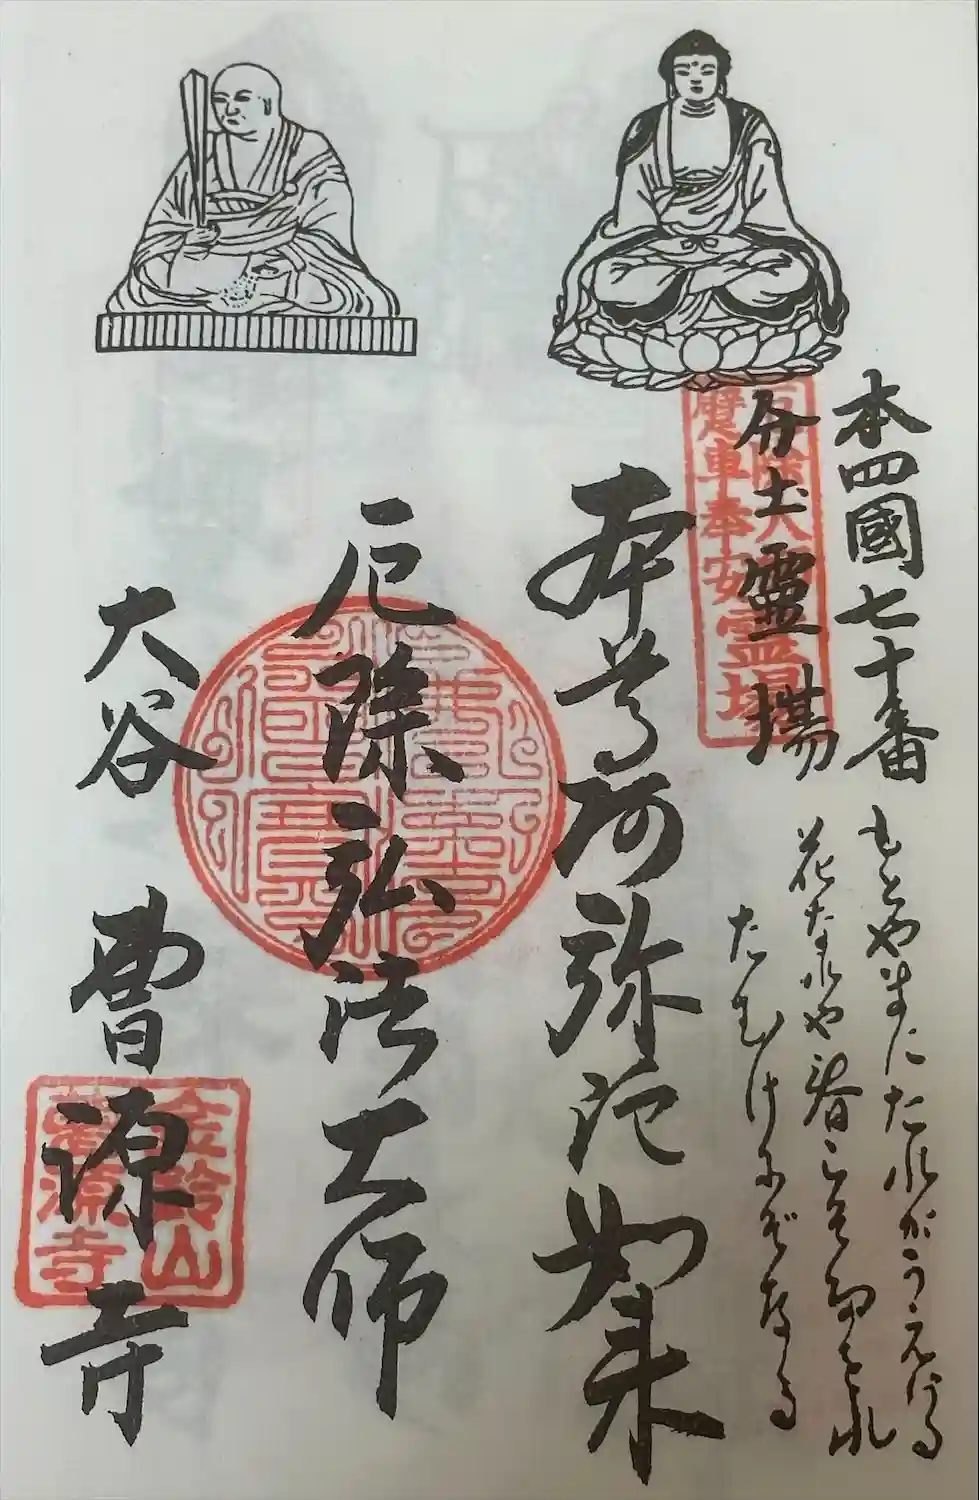 本四國七十番
分土靈場
もとやまにたれがうえける
花なれや春こそたをれ
たむけにぞなる
車奉安
本尊阿弥陀如来
厄除弘法大師
大谷 曹源寺
金鈴山
曹源寺